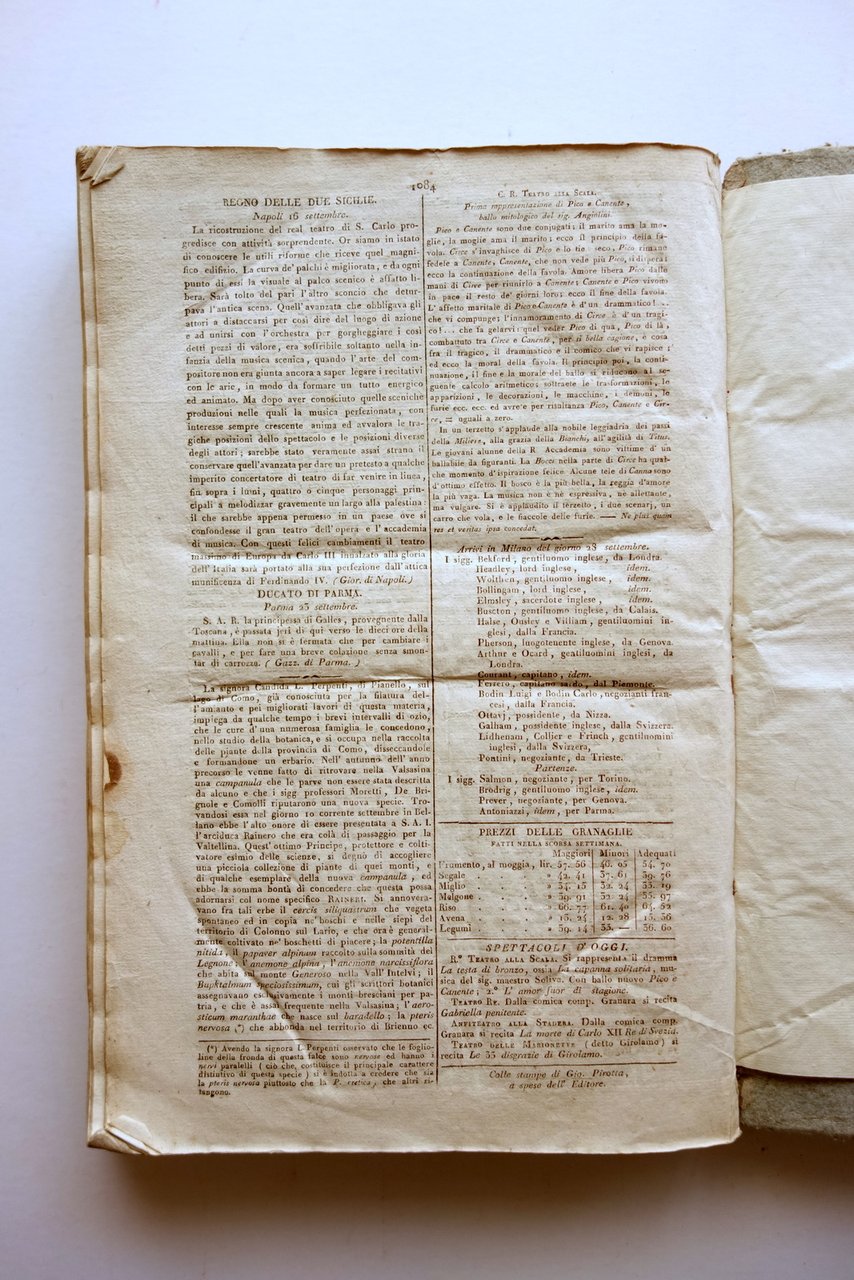 1084
REGNO DELLE DUE SICILIE.
Napoli 16 settembre.
La ricostruzione del real teatro di S. Carlo pro-
gredisce con attività sorprendente. Or siamo in istato
di conoscere le utili riforme che riceve quel magni-
fico edifizio. La curva de' palchi è migliorata, e da ogni
punto di essi la visuale al palco scenico è affatto li-
bera. Sarà tolto del pari l'altro sconcio che detur-
pava l'antica scena. Quell'avanzata che obbligava gli
attori a distaccarsi per così dire dal luogo di azione
e ad unirsi con l'orchestra per gorgheggiare i così
detti pezzi di valore, era soffribile soltanto nella in-
fanzia della musica scenica, quando l'arte del com-
positore non era giunta ancora a saper legare i recitativi
con le arie, in modo da formare un tutto energico
ed animato. Ma dopo aver conosciuto quelle sceniche
produzioni nelle quali la musica perfezionata, con
interesse sempre crescente anima ed avvalora le tra-
giche posizioni dello spettacolo e le posizioni diverse
degli attori; sarebbe stato veramente assai strano il
conservare quell'avanzata per dare un pretesto a qualche
imperito concertatore di teatro di far venire in linea,
fin sopra i lumi, quattro o cinque personaggi prin-
cipali a melodizzar gravemente un largo alla palestina:
il che sarebbe appena permesso in un paese ove si
confondesse il gran teatro dell'opera e l'accademia
di musica. Con questi felici cambiamenti il teatro
massimo di Europa da Carlo III innalzato alla gloria
dell'Italia sarà portato alla sua perfezione dall'attica
munificenza di Ferdinando IV. (Gior. di Napoli.)
DUCATO DI PARMA.
Parma 23 settembre.
S. A. R. la principessa di Galles, provegnente dalla
Toscana, è passata jeri di qui verso le dieci ore della
mattina. Ella non si è fermata che per cambiare i
cavalli, e per fare una breve colazione senza smon-
tar di carrozza. (Gazz. di Parma.)
La signora Candida L. Perpenti, di Pianello, sul
lago di Como, già conosciuta per la filatura del-
l'amianto e pei migliorati lavori di questa materia,
impiega da qualche tempo i brevi intervalli di ozio,
che le cure d'una numerosa famiglia le concedono,
nello studio della botanica, e si occupa nella raccolta
delle piante della provincia di Como, disseccandole
e formandone un erbario. Nell'autunno dell'anno
precorso le venne fatto di ritrovare nella Valsasina
una campanula che le parve non essere stata descritta
da alcuno e che i sigg. professori Moretti, De Bri-
gnole e Comolli riputarono una nuova specie. Tro-
vandosi essa nel giorno 10 corrente settembre in Bel-
lano ebbe l'alto onore di essere presentata a S. A. I.
l'arciduca Rainero che era colà di passaggio per la
Valtellina. Quest'ottimo Principe, protettore e colti-
vatore esimio delle scienze, si degnò di accogliere
una picciola collezione di piante di quei monti, e
di qualche esemplare della nuova campanula, ed
ebbe la somma bontà di concedere che questa possa
adornarsi col nome specifico RAINERI. Si annovera-
vano fra tali erbe il cercis siliquastrum che vegeta
spontaneo ed in copia ne' boschi e nelle siepi del
territorio di Colonno sul Lario, e che ora è general-
mente coltivato ne' boschetti di piacere; la potentilla
nitida, il papaver alpinum raccolto sulla sommità del
Legnone; l'anemone alpina, l'anemone narcissiflora
che abita sul monte Generoso nella Vall'Intelvi; il
Buphtalmum speciosissimum, cui gli scrittori botanici
assegnavano esclusivamente i monti bresciani per pa-
tria, e che è assai frequente nella Valsasina; l'aero-
sticum maranthae che nasce sul baradello; la pteris
nervosa (*) che abbonda nel territorio di Brienno ec.
(*) Avendo la signora L. Perpenti osservato che le foglio-
line della fronda di questa felce sono nervose ed hanno i
nervi paralelli (ciò che costituisce il principale carattere
distintivo di questa specie) si è indotta a credere che sia
la pteris nervosa piuttosto che la P. cretica, che altri ri-
tengono.
C. R. TEATRO ALLA SCALA.
Prima rappresentazione di Pico e Canente,
ballo mitologico del sig. Angiolini.
Pico e Canente sono due conjugati, il marito ama la mo-
glie, la moglie ama il marito: ecco il principio della fa-
vola. Circe s'invaghisce di Pico e lo tie seco, Pico rimane
fedele a Canente, Canente, che non vede più Pico, si dispera:
ecco la continuazione della favola. Amore libera Pico dalle
mani di Circe per riunirlo a Canente; Canente e Pico vivono
in pace il resto de' giorni loro: ecco il fine della favola.
L'affetto maritale di Pico e Canente è d'un drammatico! ...
che vi compunge; l'innamoramento di Circe è d'un tragi-
co!... che fa gelarvi: quel veder Pico di qua, Pico di là,
combattuto tra Circe e Canente, per sì bella cagione, è cosa
fra il tragico, il drammatico e il comico che vi rapisce:
ed ecco la moral della favola. Il principio poi, la conti-
nuazione, il fine e la morale del ballo si riducono al se-
guente calcolo aritmetico: sottraete le trasformazioni, le
apparizioni, le decorazioni, le macchine, i demonj, le
furie ecc. ecc. ed avrete per risultanza Pico, Canente e Cir-
ce, = uguali a zero.
In un terzetto s'applaude alla nobile leggiadria dei passi
della Millere, alla grazia della Bianchi, all'agilità di Titus.
Le giovani alunne della R. Accademia sono vittime d'un
ballabile da figuranti. La Bocci nella parte di Circe ha qual-
che momento d'ispirazione felice. Alcune tele di Canna sono
d'ottimo effetto. Il bosco è la più bella, la reggia d'amore
la più vaga. La musica non è nè espressiva, nè allettante,
ma vulgare. Si è applaudito il terzetto, i due scenarj, un
carro che vola, e le fiaccole delle furie. — Ne plus quam
res et veritas ipsa concedat.
Arrivi in Milano del giorno 28 settembre.
I sigg. Bekford, gentiluomo inglese, da Londra.
Headley, lord inglese, idem.
Wolthen, gentiluomo inglese, idem.
Bollingam, lord inglese, idem.
Elmsley, sacerdote inglese, idem.
Buscton, gentiluomo inglese, da Calais.
Halse, Ousley e Villiam, gentiluomini in-
glesi, dalla Francia.
Pherson, luogotenente inglese, da Genova.
Arthur e Ocard, gentiluomini inglesi, da
Londra.
Courant, capitano, idem.
Ferrero, capitano sardo, dal Piemonte.
Bodin Luigi e Bodin Carlo, negozianti fran-
cesi, dalla Francia.
Ottavj, possidente, da Nizza.
Galham, possidente inglese, dalla Svizzera.
Lidhenam, Colljer e Frinch, gentiluomini
inglesi, dalla Svizzera,
Pontini, negoziante, da Trieste.
Partenze.
I sigg. Salmon, negoziante, per Torino.
Brodrig, gentiluomo inglese, idem.
Prever, negoziante, per Genova.
Antoniazzi, idem, per Parma.
PREZZI DELLE GRANAGLIE
FATTI NELLA SCORSA SETTIMANA.
Maggiori Minori Adequati
Frumento, al moggia, lir. 57. 56 48. 05 54. 70
Segale » 42. 41 37. 61 39. 76
Miglio » 34. 15 32. 24 33. 19
Melgone » 39. 91 32. 24 35. 97
Riso » 66. 77 61. 40 64. 82
Avena » 13. 24 12. 28 13. 36
Legumi » 39. 14 33. — 36. 60
SPETTACOLI D'OGGI.
R.° TEATRO ALLA SCALA. Si rappresenta il dramma
La testa di bronzo, ossia La capanna solitaria, mu-
sica del sig. maestro Soliva. Con ballo nuovo Pico e
Canente; 2.° L'amor fuor di stagione.
TEATRO RE. Dalla comica comp. Granara si recita
Gabriella penitente.
ANFITEATRO ALLA STADERA. Dalla comica comp.
Granara si recita La morte di Carlo XII Re di Svezia.
TEATRO DELLE MARIONETTE (detto Girolamo) si
recita Le 33 disgrazie di Girolamo.
Colle stampe di Gio. Pirotta,
a spese dell'Editore.